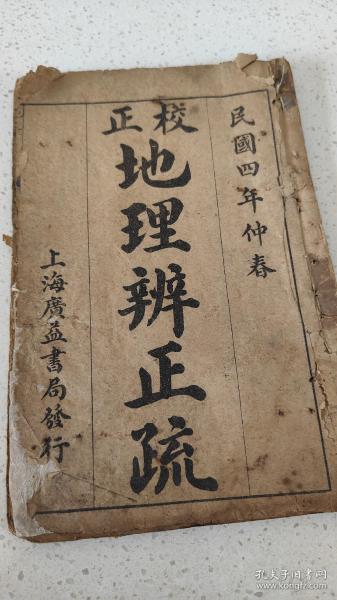 民國四年仲春
校正
地理辨正疏
上海廣益書局發行
孔夫子旧书网
www.kongfz.com